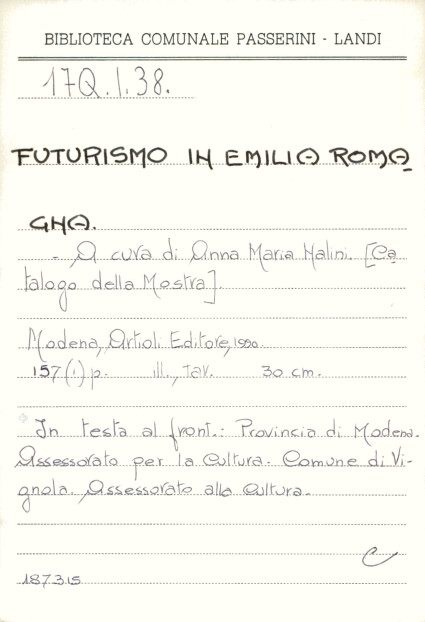 BIBLIOTECA COMUNALE PASSERINI - LANDI
17Q.I.38.
FUTURISMO IN EMILIA ROMA
GNA.
- A cura di Anna Maria Nalini. [Ca
talogo della Mostra]
Modena, Artioli Editore, 1990.
157 (1) p. ill., tav. 30 cm.
In testa al front.: Provincia di Modena.
Assessorato per la Cultura. Comune di Vi-
gnola. Assessorato alla Cultura.
C
187315